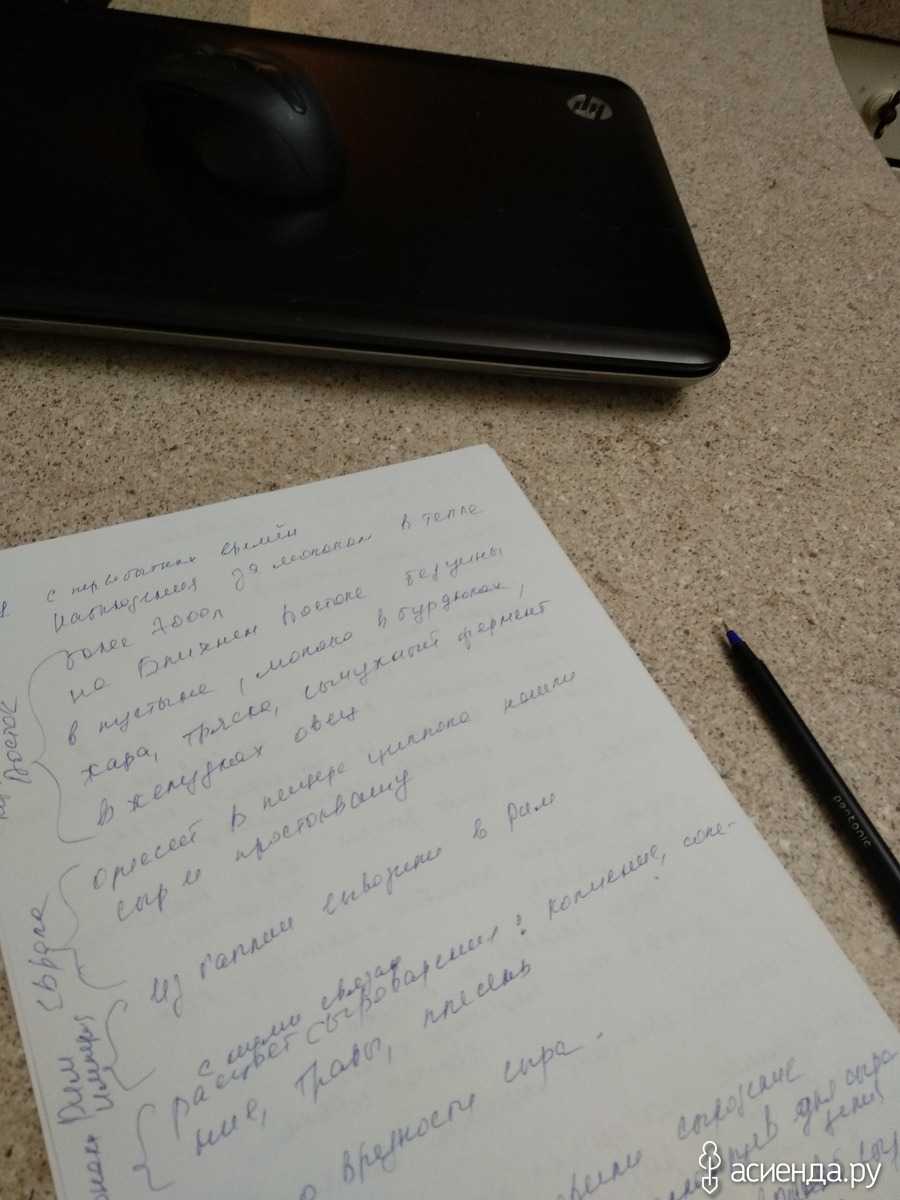 hp
с первобытных времён
наблюдения за молоком в тепле
более 7000л
на Ближнем Востоке бедуины
в пустыне, молоко в бурдюках,
жара, тряска, сычужный фермент
в желудках овец
Восток
Одиссей в пещере циклопа нашли
сыр и простоквашу
Европа
Из Галлии сывозили в Рим
с ними связан
расцвет сыроварения: копчение, соле-
ние, травы, плесень
Рим
империя
о вредности сыра.
для сыра
pentonic
асиенда.ру